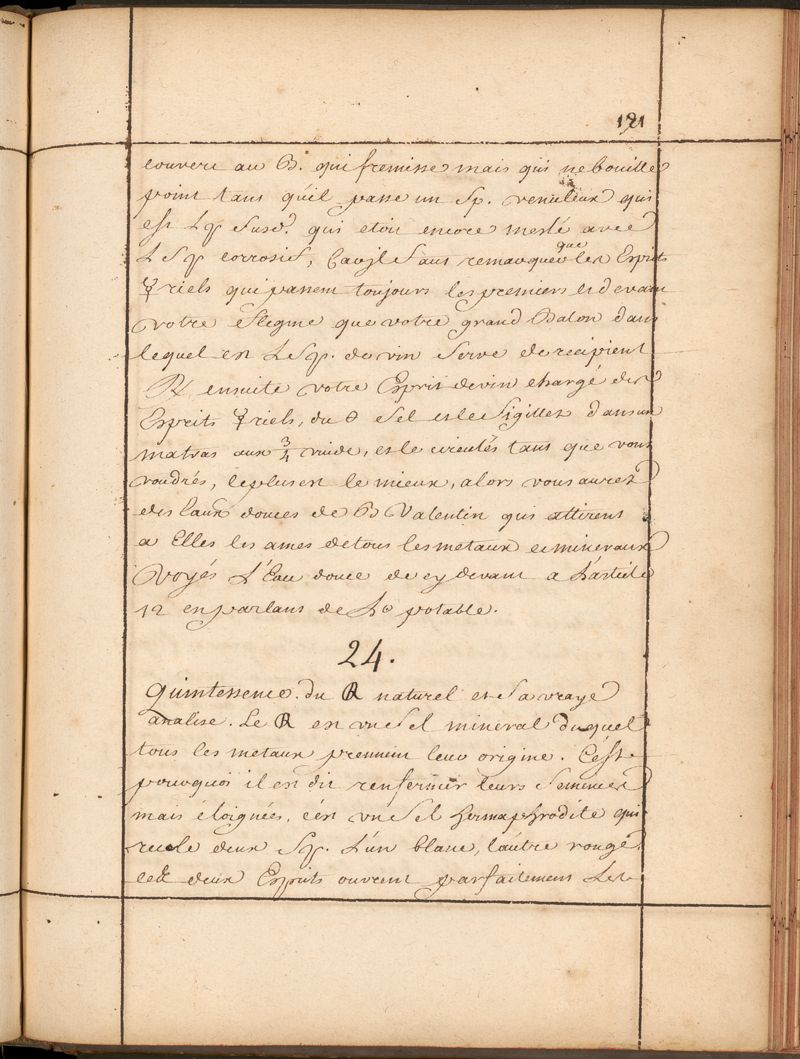 121
couvert au B. qui fremisse mais qui ne bouille
point tant qu'il passe un Sp. venuleux qui
est Lsp susd. qui etoit encore meslé avec
L Sp corrosif, Car il faut remarquer que les Esprits
☿riels qui passent toujours les premiers et devant
votre flegme que votre grand Balon dans
lequel est Le Sp. de vin serve de recipient
℞ ensuite votre Esprit de vin chargé des
Esprits ☿riels, du θ Sel et le Sigillez dans un
matras aux 3/4 vuide, et le circulés tant que vous
voudrés, le plus est le mieux, alors vous aurez
des Eaux douces de B Valentin qui attirent
a Elles les ames de tous les metaux et mineraux
Voyés L'Eau douce de cy devant a L'article
12 en parlant de L'o potable.
24.
Quintessence du R naturel et sa vraye
analise. Le R est un Sel mineral duquel
tous les metaux prennent leur origine. C'est
pourquoi il est dit renfermer leurs Semences
mais éloignées, c'est un Sel hermaphrodite qui
recele deux Sp. L'un blanc, l'autre rouge
ces deux Esprits ouvrent parfaitement Les